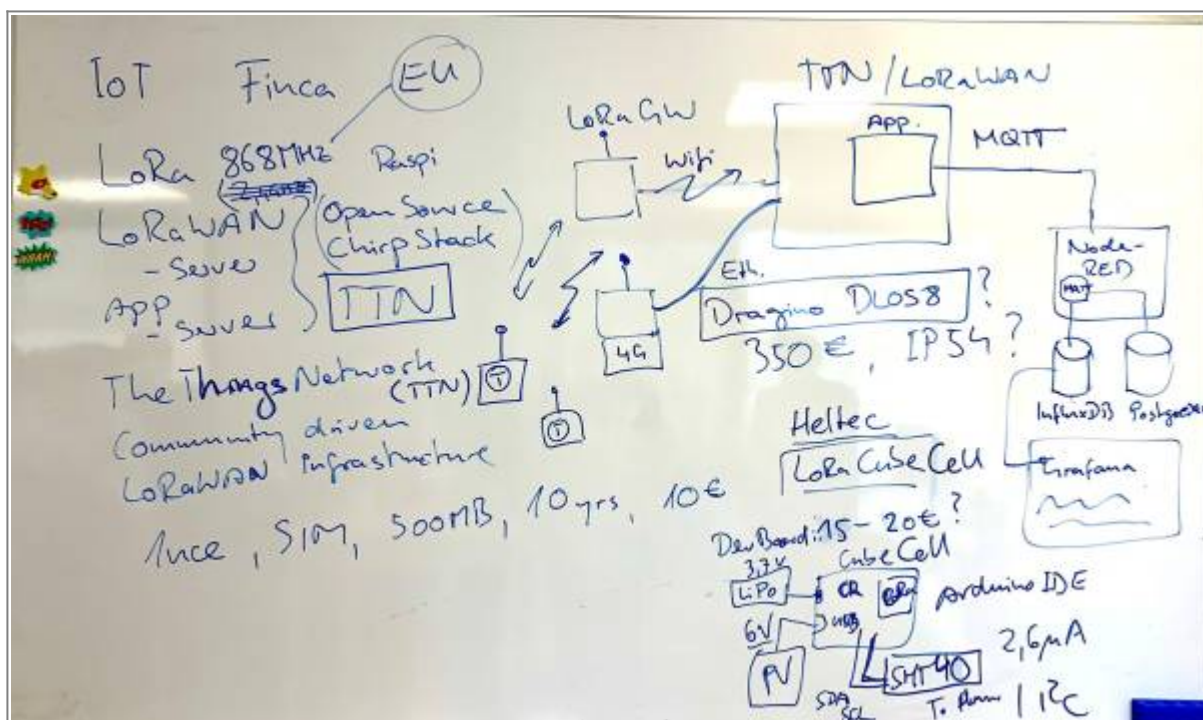 IoT Finca EU
LoRa 868MHz Raspi
LoRaWAN
- Server
App
- Server
(Open Source
ChirpStack)
TTN
The Things Network
(TTN)
Community driven
LoRaWAN Infrastructure
1nce, SIM, 500MB, 10yrs, 10€
LoRa GW
Wifi
4G
T
T
TTN/LoRaWAN
App.
MQTT
Eth.
Dragino DLOS8 ?
350€, IP54?
Node-
RED
InfluxDB
Grafana
Heltec
LoRa CubeCell
Dev Board: 15-20€?
CubeCell
3,7V
LiPo
LoRa
USB
Arduino IDE
6V
PV
SHT40
2,6µA
SDA
SCL
I²C